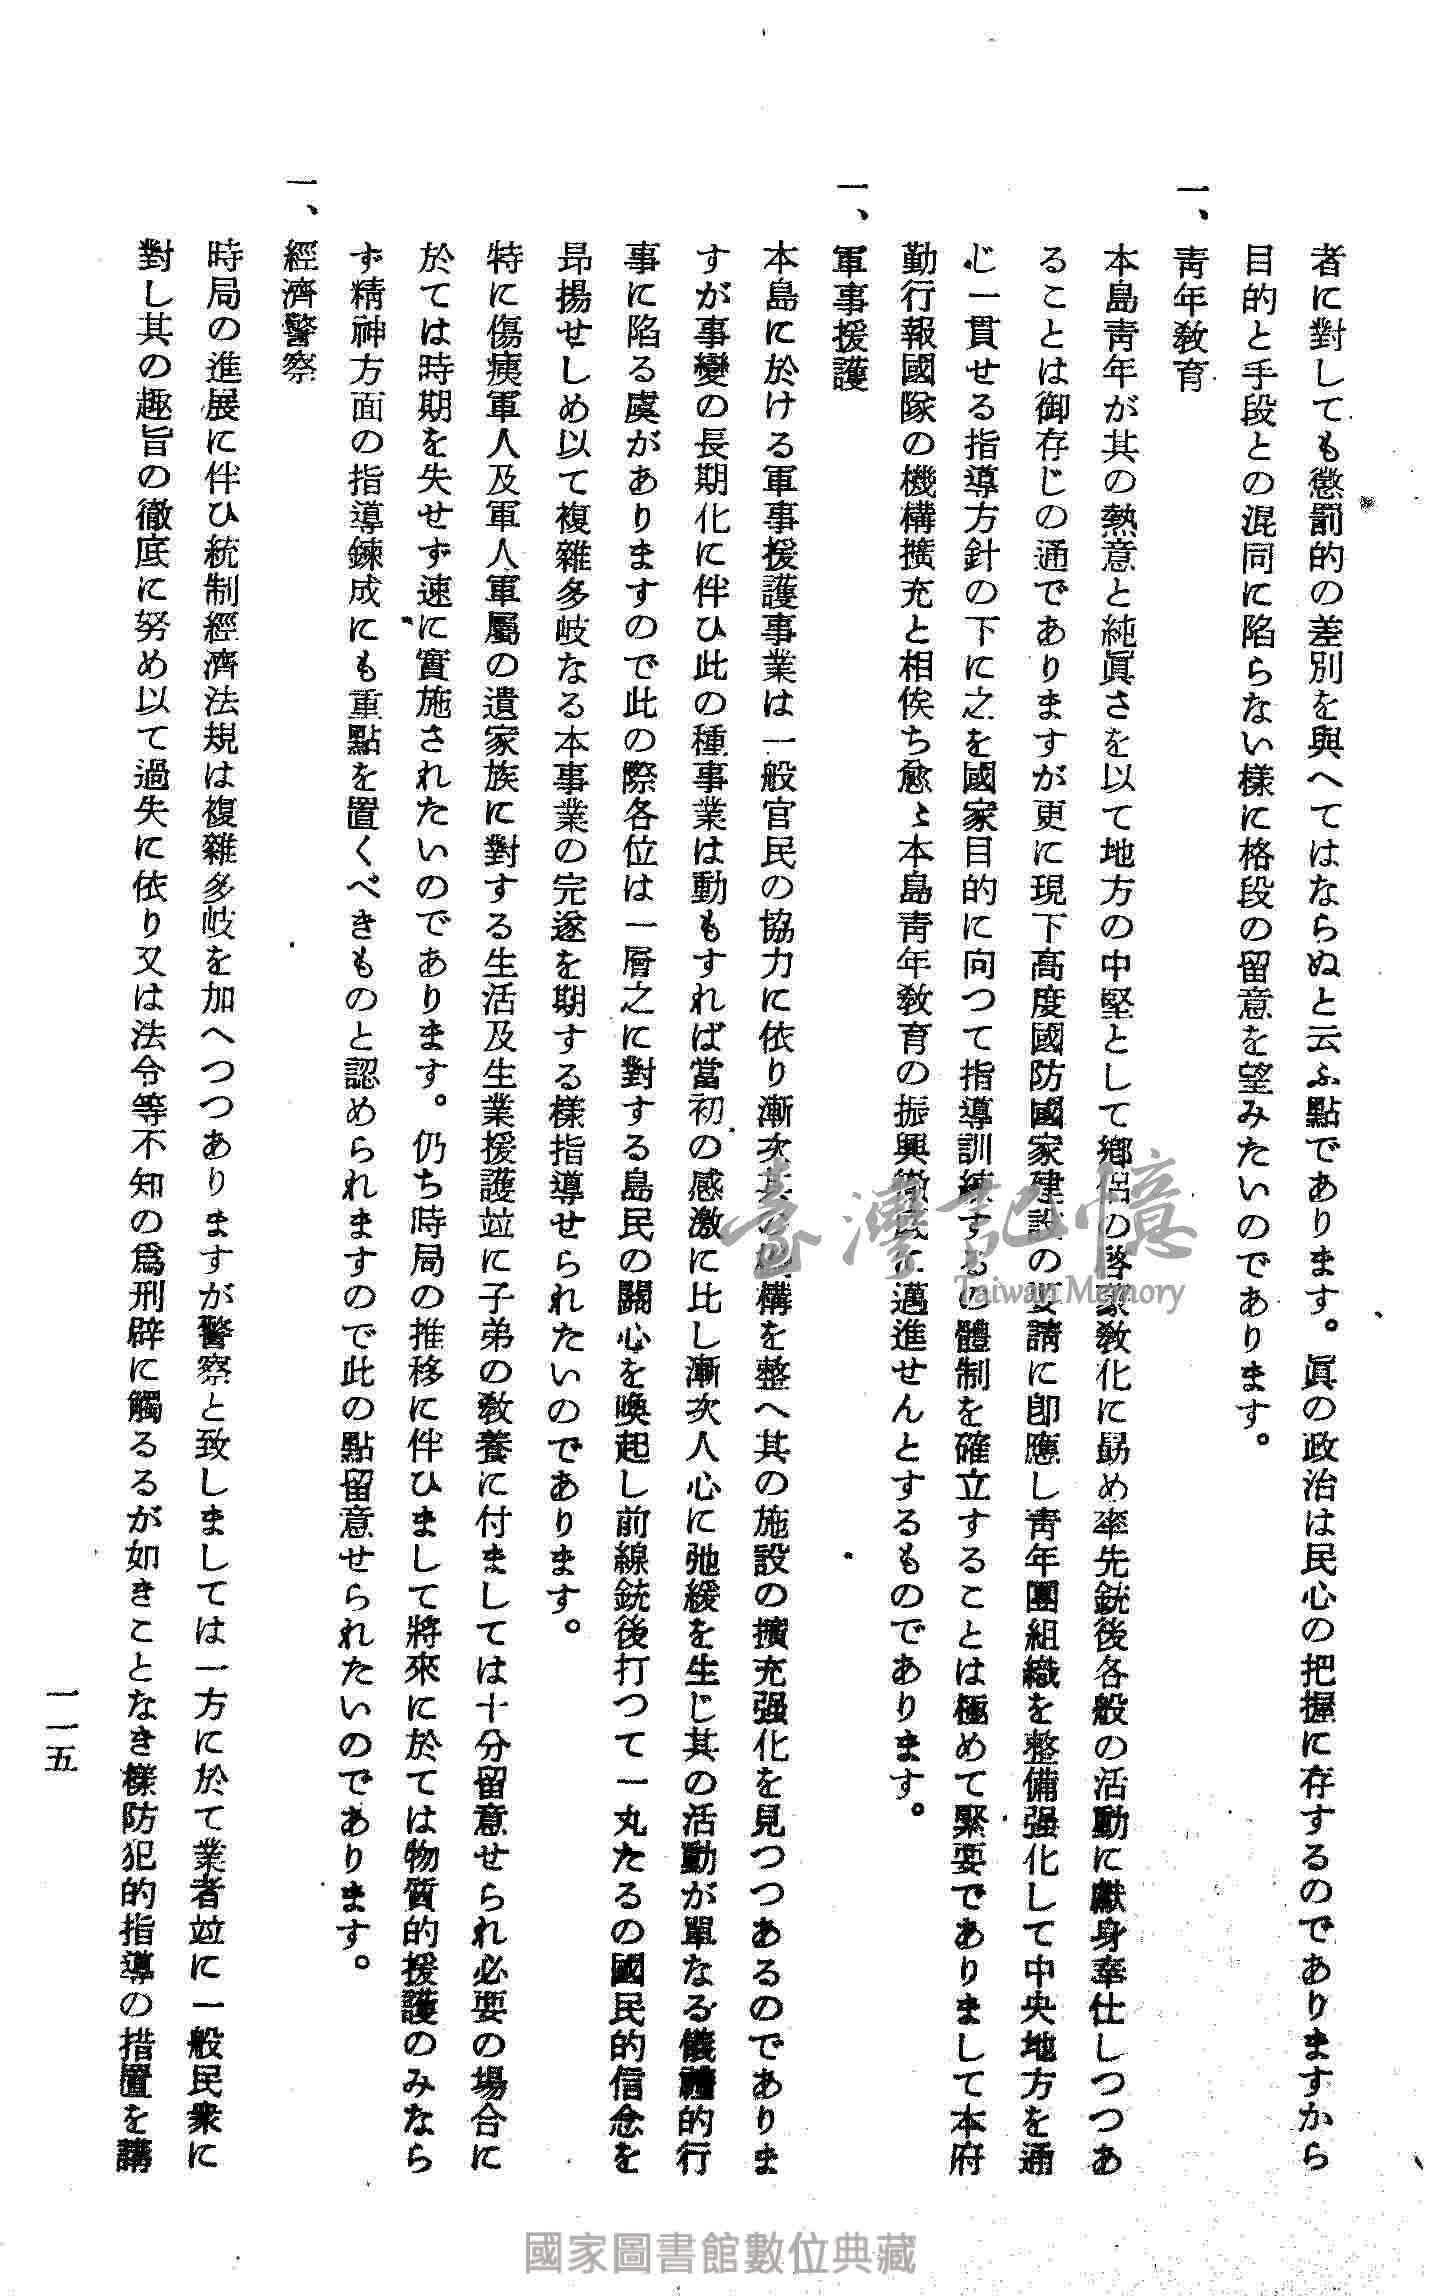 者に對しても懲罰的の差別を與へてはならぬと云ふ點であります。眞の政治は民心の把握に存するのでありますから
目的と手段との混同に陷らない樣に格段の留意を望みたいのであります。
一、靑年敎育
本島靑年が其の熱意と純眞さを以て地方の中堅として鄕侶の啓蒙敎化に勗め率先銃後各般の活動に獻身奉仕しつつあ
ることは御存じの通でありますが更に現下高度國防國家建設の要請に卽應し靑年團組織を整備强化して中央地方を通
じ一貫せる指導方針の下に之を國家目的に向つて指導訓練するの體制を確立することは極めて緊要でありまして本府
勤行報國隊の機構擴充と相俟ち愈〻本島靑年敎育の振興徹底に邁進せんとするものであります。
一、軍事援護
本島に於ける軍事援護事業は一般官民の協力に依り漸次其の機構を整へ其の施設の擴充强化を見つつあるのでありま
すが事變の長期化に伴ひ此の種事業は動もすれば當初の感激に比し漸次人心に弛緩を生じ其の活動が單なる儀禮的行
事に陷る虞がありますので此の際各位は一層之に對する島民の關心を喚起し前線銃後打つて一丸たるの國民的信念を
昂揚せしめ以て複雜多岐なる本事業の完遂を期する樣指導せられたいのであります。
特に傷痍軍人及軍人軍屬の遺家族に對する生活及生業援護竝に子弟の敎養に付ましては十分留意せられ必要の場合に
於ては時期を失せず速に實施されたいのであります。仍ち時局の推移に伴ひまして將來に於ては物質的援護のみなら
ず精神方面の指導鍊成にも重點を置くべきものと認められますので此の點留意せられたいのであります。
一、經濟警察
時局の進展に伴ひ統制經濟法規は複雜多岐を加へつつありますが警察と致しましては一方に於て業者竝に一般民衆に
對し其の趣旨の徹底に努め以て過失に依り又は法令等不知の爲刑辟に觸るるが如きことなき樣防犯的指導の措置を講
一一五
臺灣記憶
Taiwan Memory
國家圖書館數位典藏